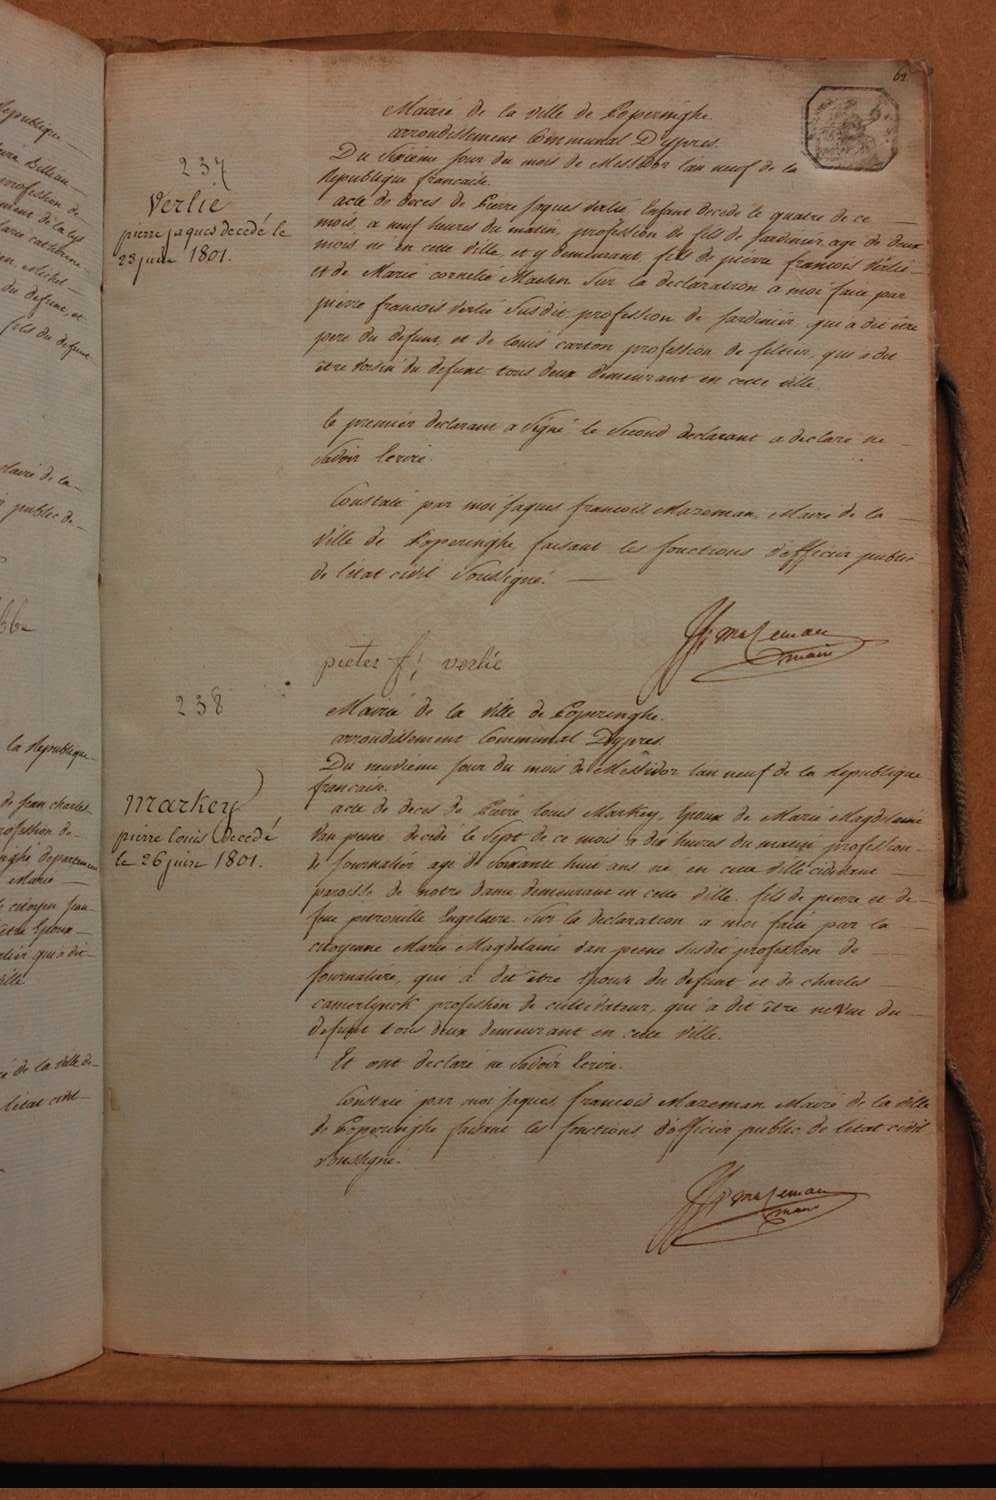 62
237
Verlie
pierre jaques decedé le
23 juin 1801.
Mairie de la ville de Poperinghe
arrondissement Communal D'ypres.
Du Sixieme jour du mois de Messidor l'an neuf de la
Republique francaise.
acte de deces de Pierre Jaques Verlie Enfant decedé le quatre de ce
mois, a neuf heures du matin, profession de fils de jardinier agé de deux
mois né en cette ville, et y demeurant, fils de pierre francois Verlie
et de Marie cornelie Maesen Sur la declaration a moi faite par
pierre francois Verlie Susdit profession de jardinier, qui a dit être
pere du defunt, et de louis carton profession de filtier, qui a dit
être voisin du defunt tous deux demeurant en cette ville
le premier declarant a Signé le Second declarant a declaré ne
Savoir Ecrire.
Constaté par moi Jaques francois Mazeman, Maire de la
Ville de Poperinghe, faisant les fonctions d'officier public
de l'etat civil Soussigné.
JF Mazeman
maire
pieter f: verlie
238
Markey
pierre louis decedé
le 26 juin 1801.
Mairie de la Ville de Poperinghe.
arrondissement Communal D'ypres.
Du neuvieme jour du mois de Messidor l'an neuf de la Republique
francaise.
acte de deces de Pierre louis Markey, Epoux de Marie Magdelaine
Van peene, decedé le Sept de ce mois a dix heures du matin profession
de Journalier agé de Soixante huit ans né en cette Ville cidevant
paroisse de notre dame demeurant en cette Ville. fils de pierre et de
feue petronille Engelaere. Sur la declaration a moi faite par la
citoyenne Marie Magdelaine Van peene Susdit profession de
Journaliere, qui a dit être Epouse du defunt et de charles
camerlynck profession de cultivateur, qui a dit être neveu du
defunt tous deux demeurant en cette Ville.
Et ont declaré ne Savoir Ecrire.
Constaté par moi Jaques francois Mazeman Maire de la Ville
de Poperinghe faisant les fonctions d'officier public de l'etat civil
Soussigné.
JF Mazeman
maire